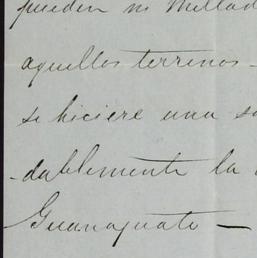 pueden ni
aquellos terrenos -
se hiciere una
-dablemente la
Guanajuato -